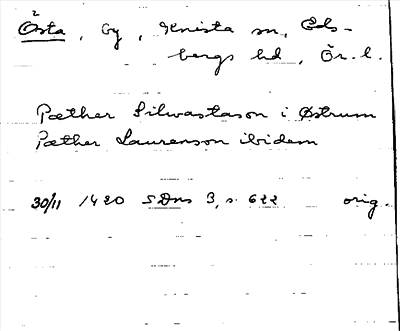 2
Östa, by, Knista sn, Eds-
bergs hd, Ör. l.
Pæther Silwastason i Østrum
Pæther Laurenson ibidem
30/11 1420 SDns 3, s. 622 orig.